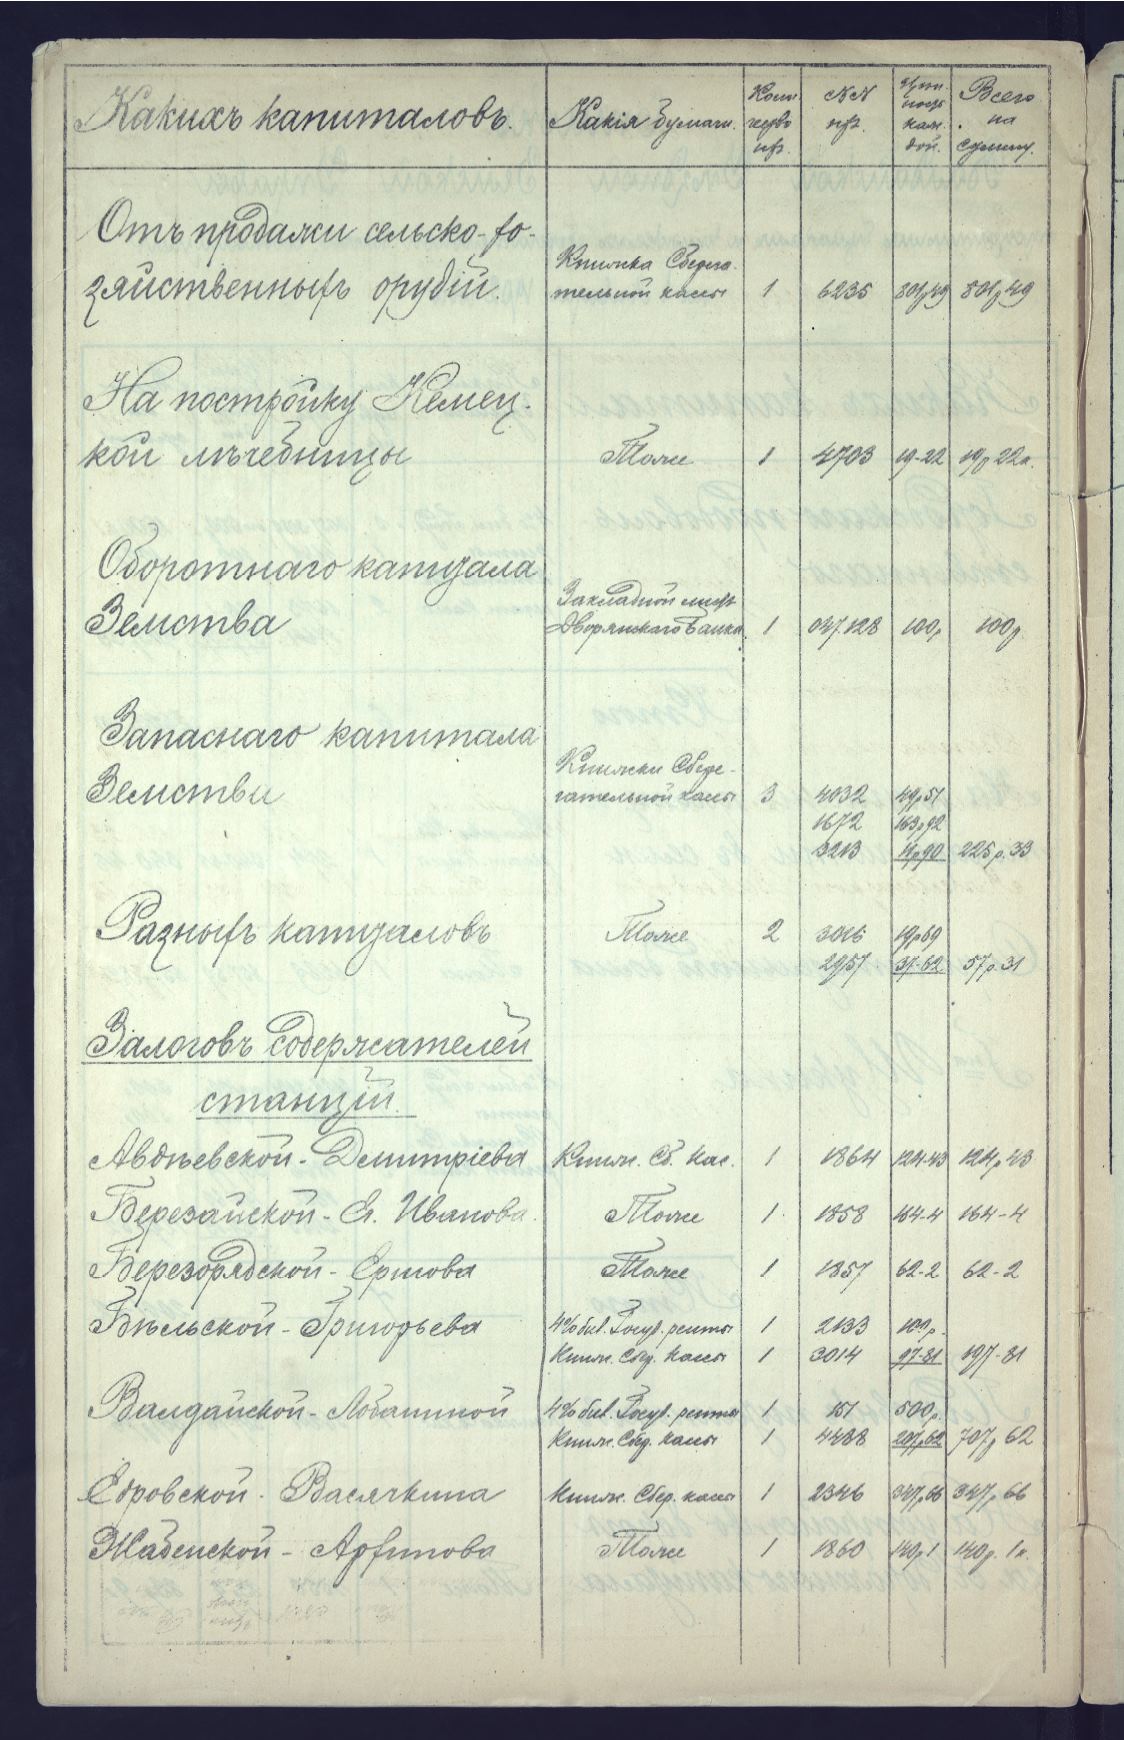 Какихъ капиталовъ. Какія бумаги. Коли-чество №№ Цѣнность каж-дой. Всего на сумму.
Отъ продажи сельско-хо-
зяйственныхъ орудій. Книжка Сберега-
тельной кассы 1 6235 801р49 801р49
На постройку
кой лѣчебницы Тоже 1 4703 19-22 19р 22к.
Оборотнаго капитала
Земства Закладной листъ
Дворянскаго Банка 1 047.128 100р 100р.
Запаснаго капитала
Земства Книжки Сбере-
гательной кассы 3 4032 49р51
1672 163р92
3213 11р90 225р.33
Разныхъ капиталовъ Тоже 2 3016 19р69
2957 37-62 57р.31
Залоговъ содержателей
станцій.
Авдѣевской - Дмитріева Книж. Сб. Кас. 1 1864 124-43 124р43
Березайской - Я. Иванова. Тоже 1 1858 164-4 164-4
Березорядской - Ершова Тоже 1 1857 62-2 62-2
Бѣльской - Григорьева 4% бил. Госуд. ренты 1 2133 100р.
Книж. Сбер. Кассы 1 3014 97-81 197-81
Валдайской - Лобашиной 4% бил. Госуд. ренты 1 151 500р.
Книж. Сбер. Кассы 1 4488 207р62 707р 62
Едровской - Васячкина Книж. Сбер. кассы 1 2346 347р66 347р66
Жабенской - Архипова Тоже 1 1860 140р1 140р. 1к.